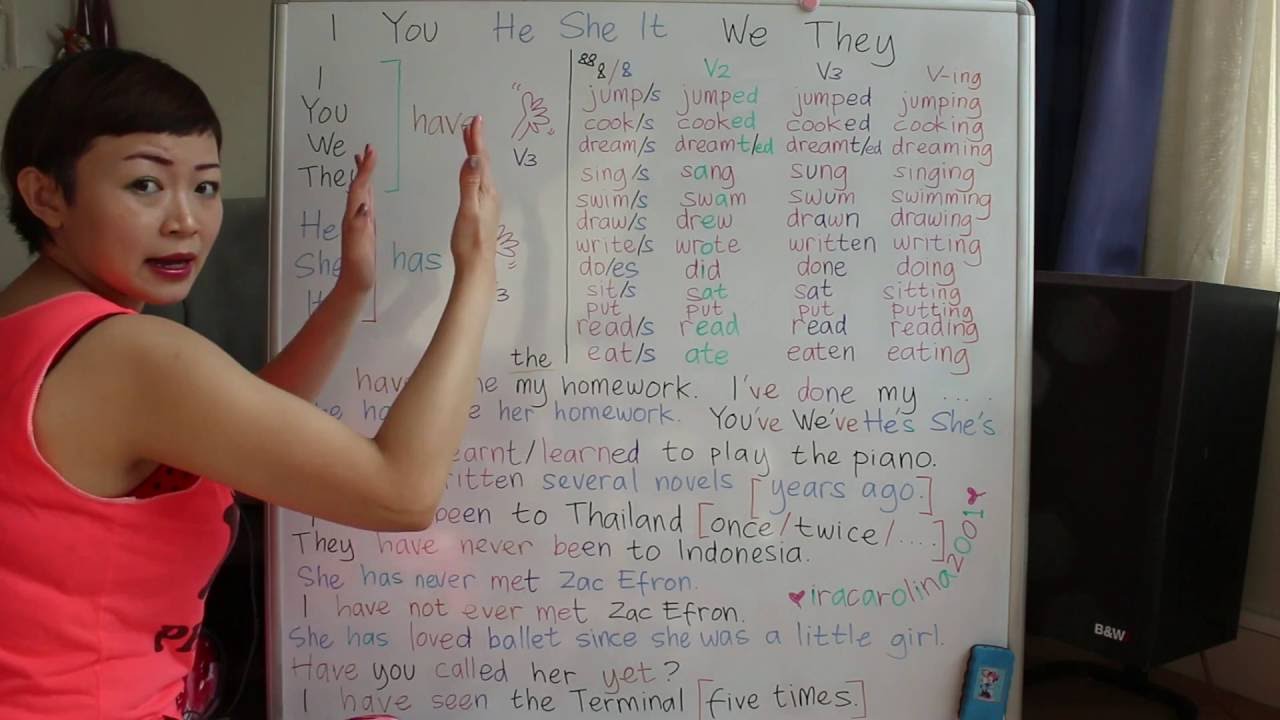 I You He She It We They
I
You
We
They
have
V3
He
She
has
3
8/8 V2 V3 V-ing
jump/s jumped jumped jumping
cook/s cooked cooked cooking
dream/s dreamt/ed dreamt/ed dreaming
sing/s sang sung singing
swim/s swam swum swimming
draw/s drew drawn drawing
write/s wrote written writing
do/es did done doing
sit/s sat sat sitting
put put put putting
read/s read read reading
eat/s ate eaten eating
the
my homework. I've done my ....
her homework. You've We've He's She's
earnt/learned to play the piano.
itten several novels [years ago.]
been to Thailand [once/twice/....]
They have never been to Indonesia.
She has never met Zac Efron.
iracarolina2001
I have not ever met Zac Efron.
She has loved ballet since she was a little girl.
Have you called her yet?
I have seen the Terminal [five times.]
B&W